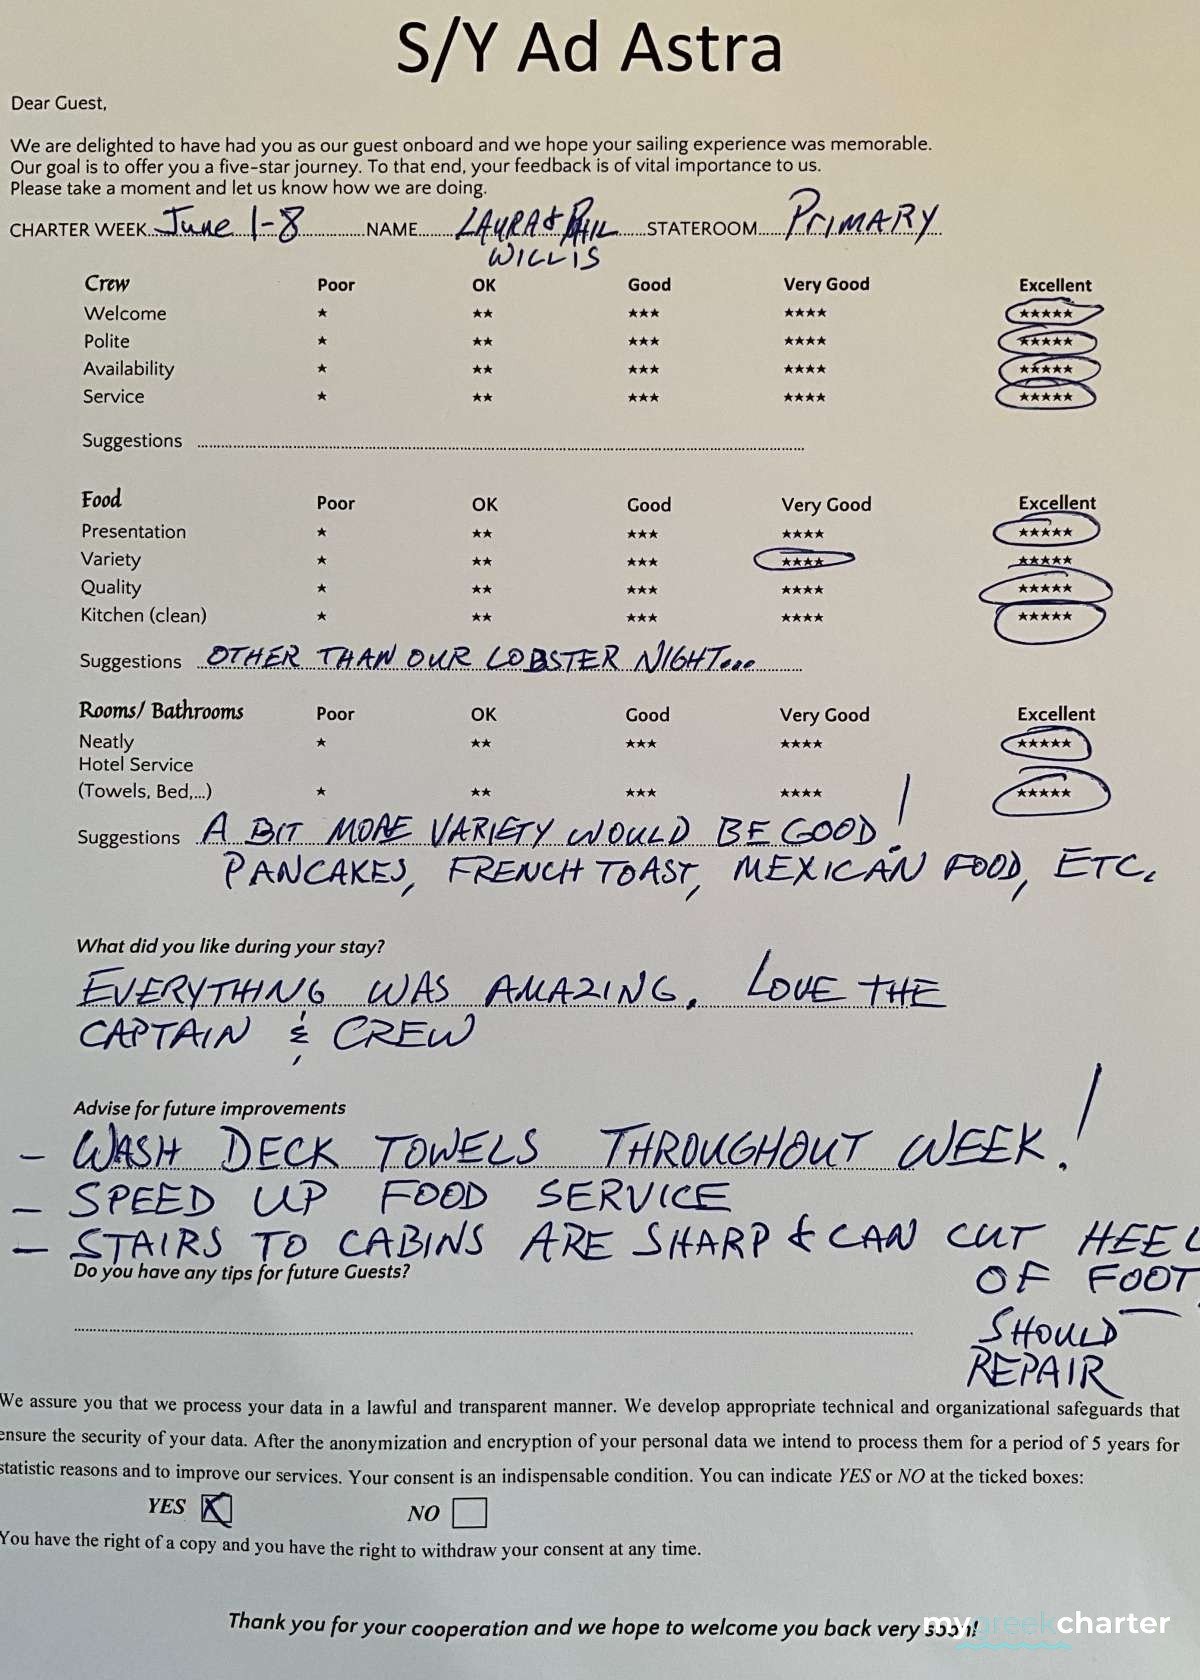 S/Y Ad Astra
Dear Guest,
We are delighted to have had you as our guest onboard and we hope your sailing experience was memorable.
Our goal is to offer you a five-star journey. To that end, your feedback is of vital importance to us.
Please take a moment and let us know how we are doing.
CHARTER WEEK June 1-8 NAME LAURA & PHIL STATEROOM PRIMARY
WILLIS
Crew Poor OK Good Very Good Excellent
Welcome ★ ★★ ★★★ ★★★★ ★★★★★
Polite ★ ★★ ★★★ ★★★★ ★★★★★
Availability ★ ★★ ★★★ ★★★★ ★★★★★
Service ★ ★★ ★★★ ★★★★ ★★★★★
Suggestions
Food Poor OK Good Very Good Excellent
Presentation ★ ★★ ★★★ ★★★★ ★★★★★
Variety ★ ★★ ★★★ ★★★★ ★★★★★
Quality ★ ★★ ★★★ ★★★★ ★★★★★
Kitchen (clean) ★ ★★ ★★★ ★★★★ ★★★★★
Suggestions OTHER THAN OUR LOBSTER NIGHT...
Rooms/ Bathrooms Poor OK Good Very Good Excellent
Neatly ★ ★★ ★★★ ★★★★ ★★★★★
Hotel Service
(Towels, Bed,...) ★ ★★ ★★★ ★★★★ ★★★★★
Suggestions A BIT MORE VARIETY WOULD BE GOOD!
PANCAKES, FRENCH TOAST, MEXICAN FOOD, ETC.
What did you like during your stay?
EVERYTHING WAS AMAZING. LOVE THE
CAPTAIN & CREW
Advise for future improvements
- WASH DECK TOWELS THROUGHOUT WEEK!
- SPEED UP FOOD SERVICE
- STAIRS TO CABINS ARE SHARP & CAN CUT HEEL
Do you have any tips for future Guests?
OF FOOT.
SHOULD
REPAIR
We assure you that we process your data in a lawful and transparent manner. We develop appropriate technical and organizational safeguards that
ensure the security of your data. After the anonymization and encryption of your personal data we intend to process them for a period of 5 years for
statistic reasons and to improve our services. Your consent is an indispensable condition. You can indicate YES or NO at the ticked boxes:
YES X NO
You have the right of a copy and you have the right to withdraw your consent at any time.
Thank you for your cooperation and we hope to welcome you back very soon!
mygreekcharter